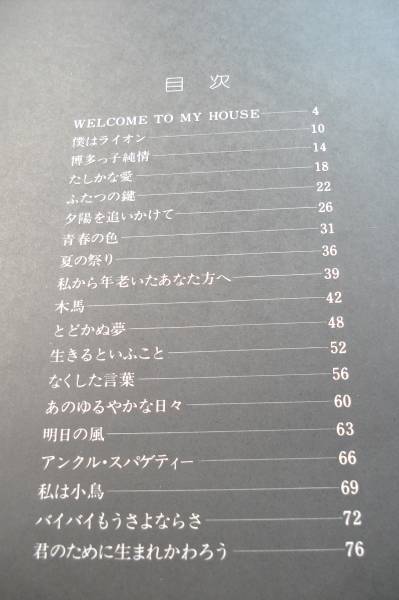 目次
WELCOME TO MY HOUSE 4
僕はライオン 10
博多っ子純情 14
たしかな愛 18
ふたつの鍵 22
夕陽を追いかけて 26
青春の色 31
夏の祭り 36
私から年老いたあなた方へ 39
木馬 42
とどかぬ夢 48
生きるといふこと 52
なくした言葉 56
あのゆるやかな日々 60
明日の風 63
アンクル・スパゲティー 66
私は小鳥 69
バイバイもうさよならさ 72
君のために生まれかわろう 76